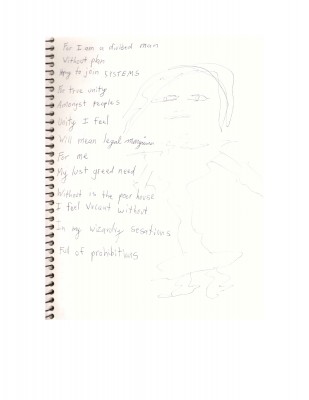 For I am a divided man
Without plan
to join SYSTEMS
For true unity
Amongst Peoples
Unity I feel
Will mean legal
For me
My lust greed need
Without is the poor house
I feel vacant without
In my wizardry sesations
Full of prohibitions